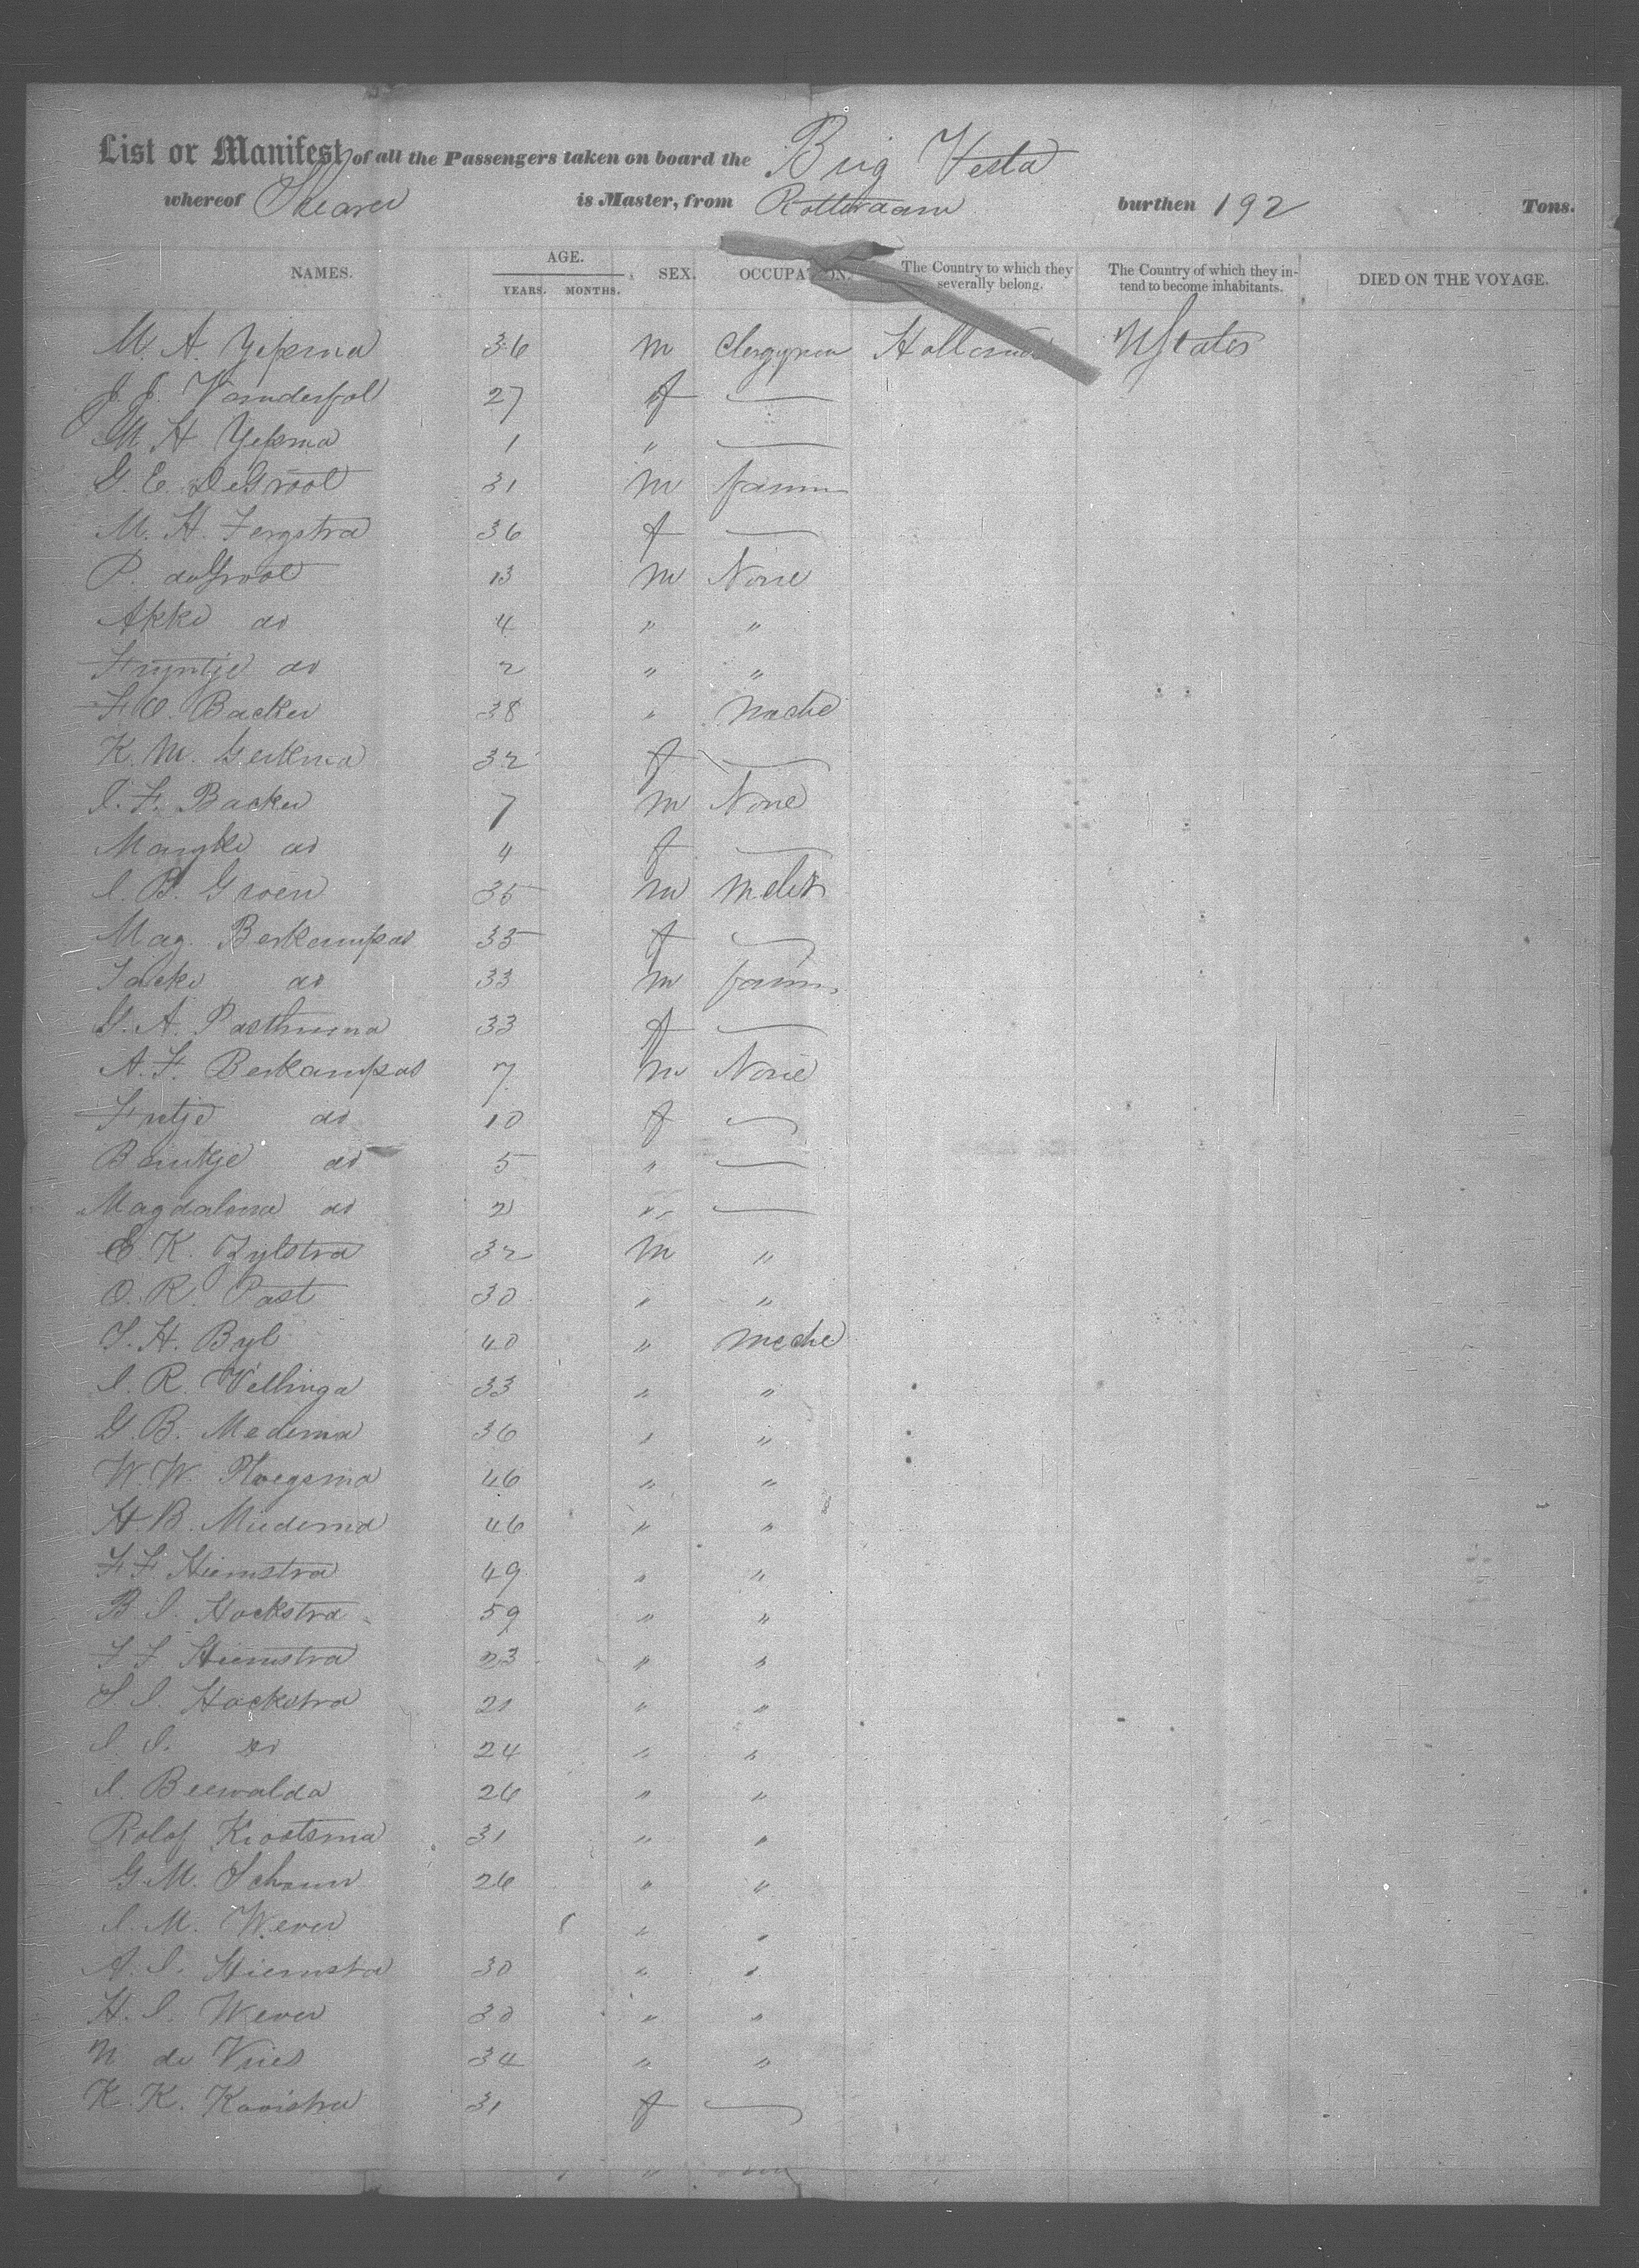 List or Manifest of all the Passengers taken on board the Brig Vesta
whereof Shearer is Master, from Rotterdam burthen 192 Tons.
NAMES. AGE. YEARS. MONTHS. SEX. OCCUPATION. The Country to which they severally belong. The Country of which they intend to become inhabitants. DIED ON THE VOYAGE.
M. A. Ypma 36 m Clergyman Holland UStates
J. J. Vanderpol 27 f —
M. H Ypma 1 " —
G. E. DeGroot 31 m farmr
M. H. Fergstra 36 f —
P. deGroot 13 m None
Akke do 4 " "
Fryntje do 2 " "
F O. Backer 38 " Mechc
K. M. Gerkma 32 f —
I. F. Backer 7 m None
Mayke do 4 f —
I. B. Groen 35 m
Mag. Berkampas 33 f —
Jacke do 33 m farmr
G. A. Pasthuma 33 f —
A. F. Berkampas 7 m None
Fretje do 10 f —
Beintje do 5 " —
Magdalena do 2 " —
E. K. Zylstra 32 m "
O. R. Past 30 " "
S. H. Byl 40 " Mechc
I. R. Vellinga 33 " "
G. B. Medema 36 " "
W. W. Ploegsma 46 " "
H B. Miedema 46 " "
F F Hiemstra 49 " "
B I. Hockstra 59 " "
F F Hiemstra 23 " "
S I. Hockstra 21 " "
I. I. do 24 " "
I. Beewalda 26 " "
Rolof Krootsma 31 " "
G. M. Schaun 26 " "
I. M. Wever " "
A. I. Hiemstra 30 " "
H. I. Wever 30 " "
N de Vries 34 " "
K. K. Kooistra 31 f —